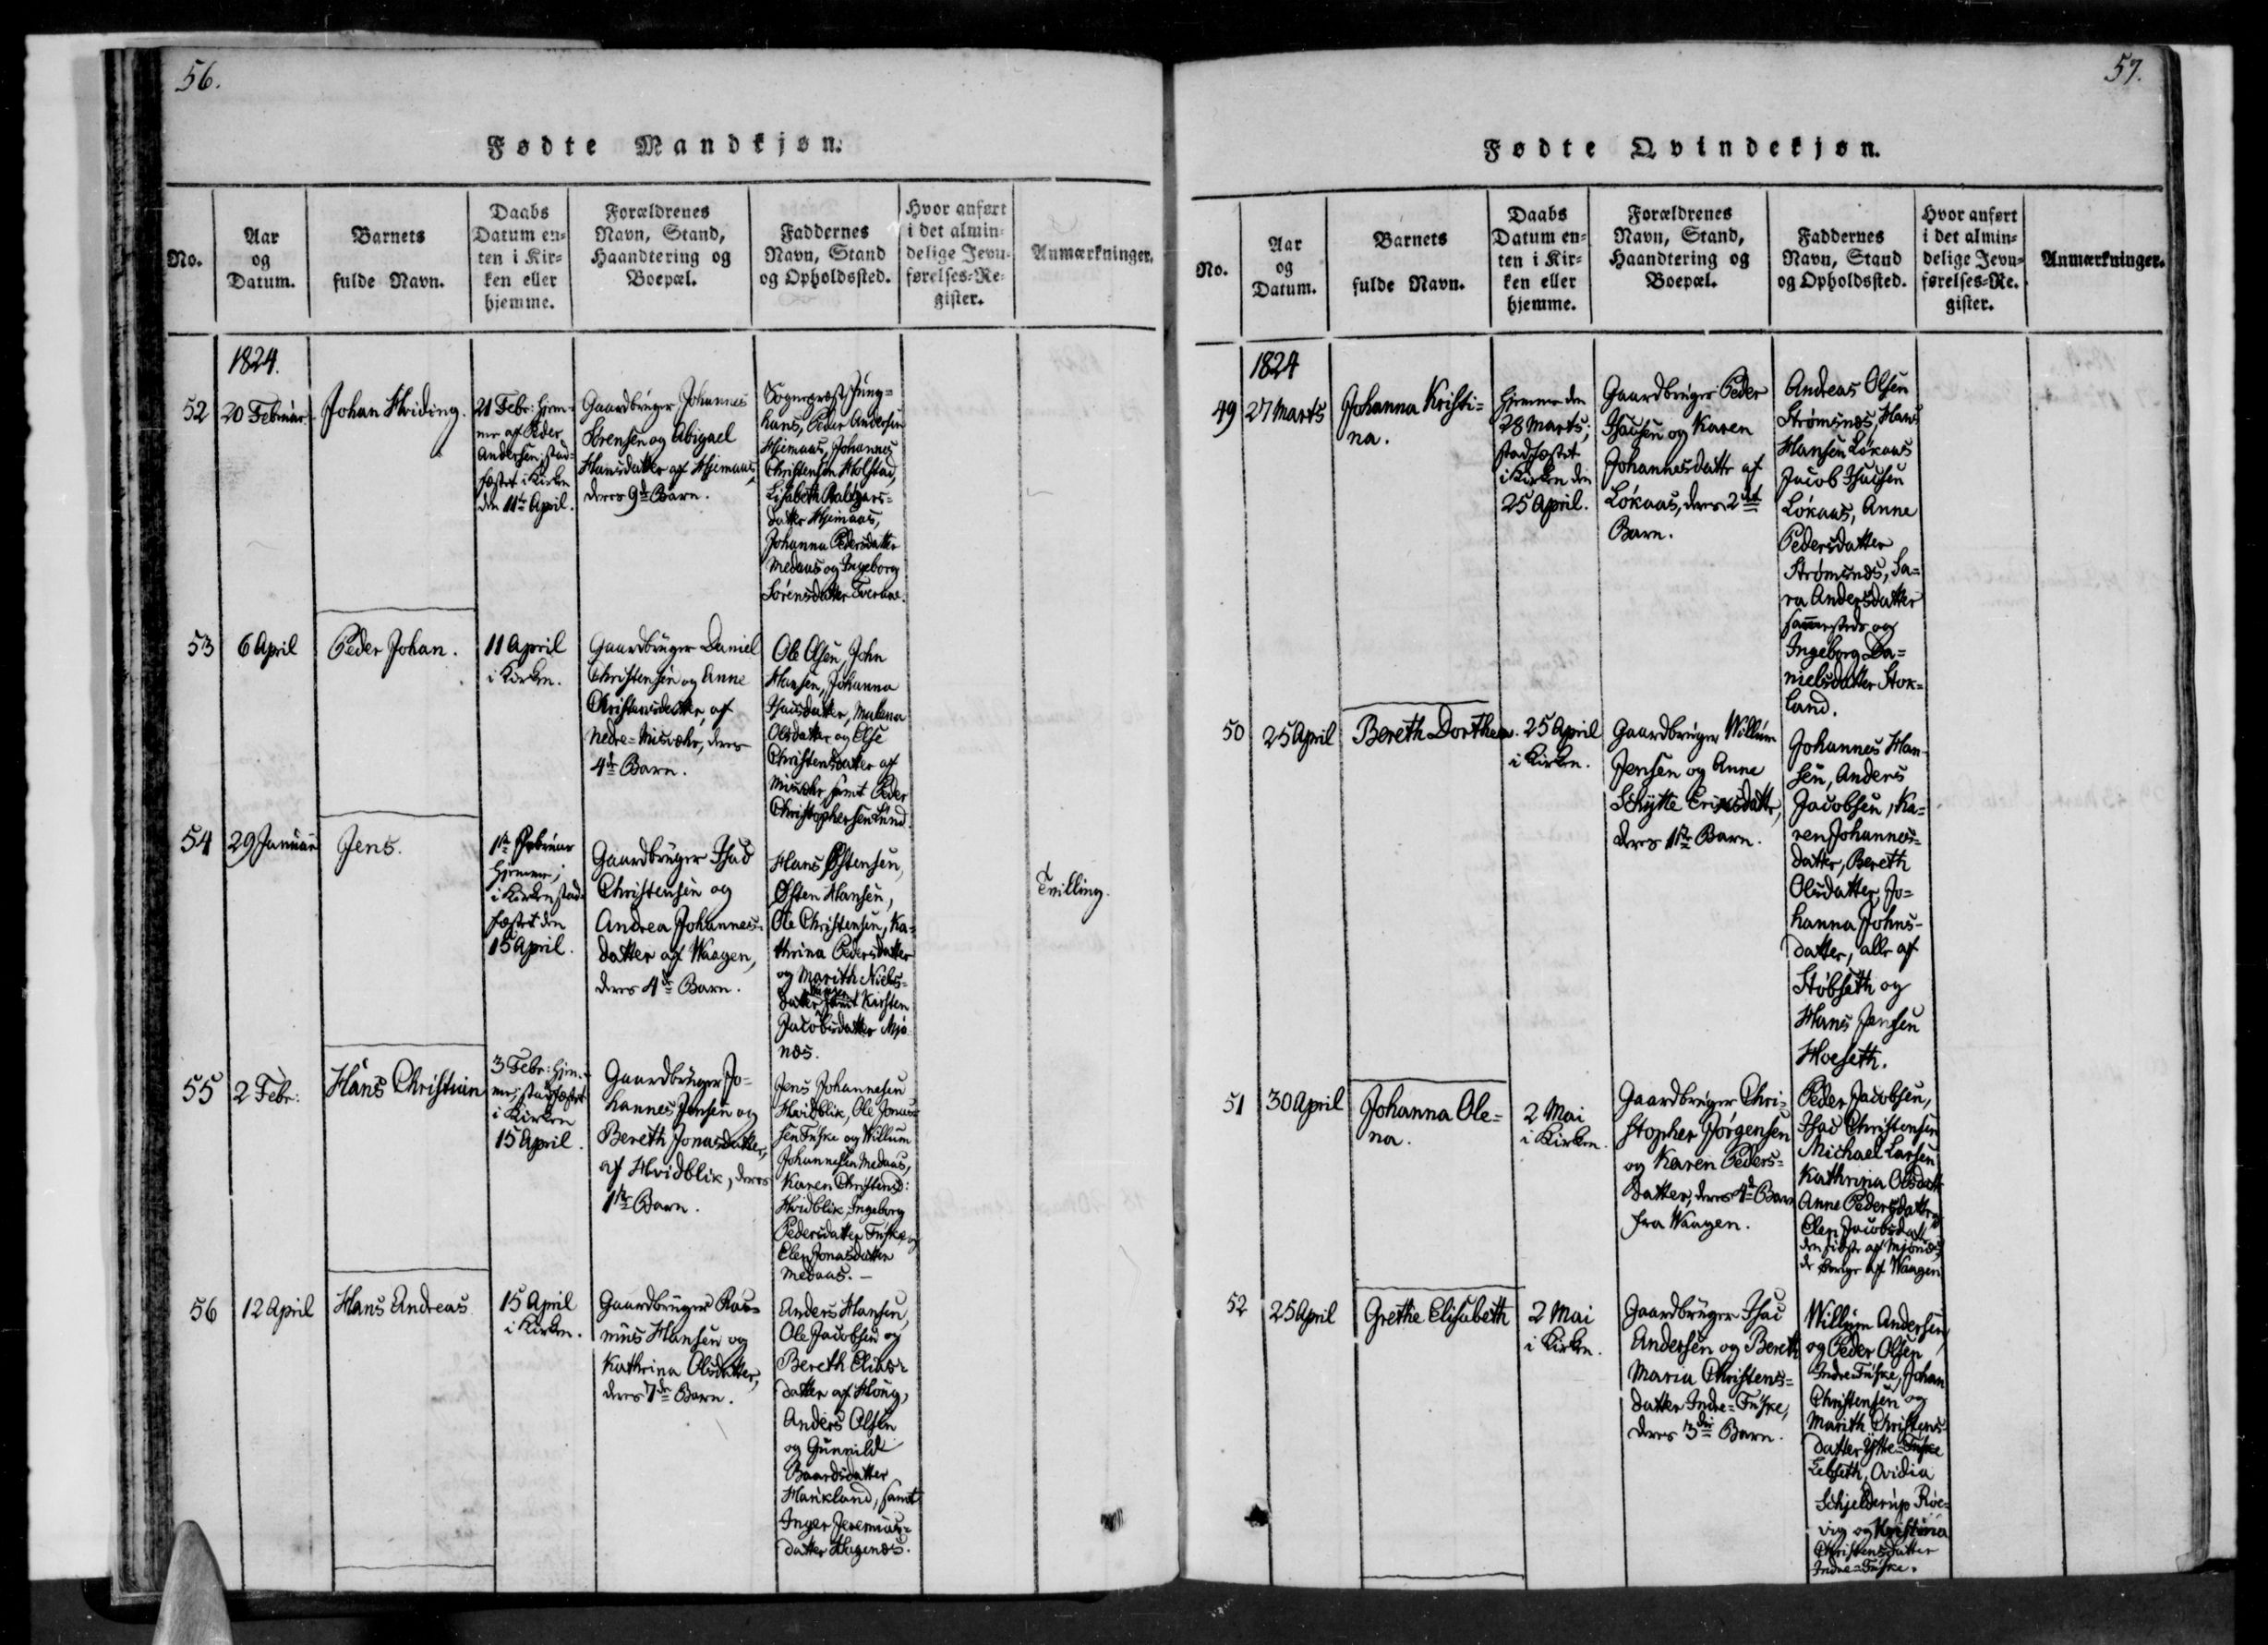 56.
Fødte Mandkjøn.
No.
Aar
og
Datum.
Barnets
fulde Navn.
Daabs
Datum en-
ten i Kir-
ken eller
hjemme.
Forældrenes
Navn, Stand,
Haandtering og
Boepæl.
Faddernes
Navn, Stand
og Opholdssted.
Hvor anført
i det almin-
delige Jevn-
førelses-Re-
gister.
Anmærkninger.
1824.
52
20 Februar
Johan Hviding.
21 Febr: hjem-
me af Peder
Andersen; stad-
fæstet i Kirken
den 11te April.
Gaardbruger Johannes
Sørensen og Abigael
Hansdatter af Hjemaas,
deres 9de Barn.
Sognepræst Jung-
hans, Peder Andersen
Hjemaas, Johannes
Christensen Holstad,
Lisabeth Baltzars-
datter Hjemaas,
Johanna Pedersdatter
Medaas og Ingeborg
Sørensdatter Tveraae.
53
6 April
Peder Johan.
11 April
i Kirken.
Gaardbruger Daniel
Christensen og Anne
Christensdatter, af
Nedre-Misvær, deres
4de Barn.
Ole Olsen, John
Hansen, Johanna
Isacsdatter, Malena
Olsdatter og Else
Christensdatter af
Misvær samt Peder
Christophersen Lund.
54
29 Januar
Jens.
1te Februar
hjemme;
i Kirken stad-
fæstet den
15 April.
Gaardbruger Isac
Christensen og
Andrea Johannes-
datter af Waagen,
deres 4de Barn.
Hans Østensen,
Østen Hansen,
Ole Christensen, Ka-
thrina Pedersdatter
og Marith Niels-
datter Kirsten
Jacobsdatter Mjø-
næs.
Tvilling.
55
2 Febr:
Hans Christian
3 Febr: hjem-
me; stadfæstet
i Kirken
15 April.
Gaardbruger Jo-
hannes Jensen og
Bereth Jonasdatter,
af Hvidblik, deres
1te Barn.
Jens Johannesen
Hvidblik, Ole Jonas-
sen Fuske og Willum
Johannesen Medaas,
Karen Christensd:
Hvidblik, Ingeborg
Pedersdatter Fuske, og
Elen Jonasdatter
Medaas. —
56
12 April
Hans Andreas.
15 April
i Kirken.
Gaardbruger Ras-
mus Hansen og
Kathrina Olsdatter,
deres 7de Barn.
Anders Hansen,
Ole Jacobsen og
Bereth Elias-
datter af Høng,
Anders Olsen
og Gunnild
Baardsdatter
Hankland, samt
Inger Jeremias-
datter Hagenæs.
57.
Fødte Qvindekjøn.
No.
Aar
og
Datum.
Barnets
fulde Navn.
Daabs
Datum en-
ten i Kir-
ken eller
hjemme.
Forældrenes
Navn, Stand,
Haandtering og
Boepæl.
Faddernes
Navn, Stand
og Opholdssted.
Hvor anført
i det almin-
delige Jevn-
førelses-Re-
gister.
Anmærkninger.
1824
49
27 Marts
Johanna Kristi-
na.
Hjemme den
28 Marts;
stadfæstet
i Kirken den
25 April.
Gaardbruger Peder
Isacsen og Karen
Johannesdattr af
Løkaas, deres 2det
Barn.
Andreas Olsen
Strømsnæs, Hans
Hansen Løkaas
Jacob Isacsen
Løkaas, Anne
Pedersdatter
Strømsnæs, Sa-
ra Andersdatter
sammesteds og
Ingeborg Da-
nielsdatter Stok-
land.
50
25 April
Bereth Dorthea.
25 April
i Kirken.
Gaardbruger Willum
Jensen og Anne
Schytte Ericsdattr,
deres 1te Barn.
Johannes Han-
sen, Anders
Jacobsen, Ka-
ren Johannes-
datter, Bereth
Olsdatter, Jo-
hanna Johns-
datter, alle af
Støbseth og
Hans Jensen
Moeseth.
51
30 April
Johanna Ole-
na.
2 Mai
i Kirken.
Gaardbruger Chri-
stopher Jørgensen
og Karen Peders-
datter, deres 4de Barn
fra Waagen.
Peder Jacobsen,
Isac Christensen
Michael Larsen
Kathrina Olsdatt
Anne Pedersdatter
Elen Jacobsdatt
den sidste af Mjønæs,
de øvrige af Waagen
52
25 April
Grethe Elisabeth
2 Mai
i Kirken.
Gaardbruger Isac
Andersen og Bereth
Maria Christens-
datter Indre-Fuske,
deres 3die Barn.
Willum Andersen
og Peder Olsen
Indre-Fuske, Johan
Christensen og
Marith Christens
datter Ytre-Fuske
Lebseth, Ovidia
Schjelderup Røe-
vig og Kristina
Christensdatter
Indre-Fuske.